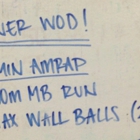 NER WOD!
MIN AMRAP
0M MB RUN
AX WALL BALLS (